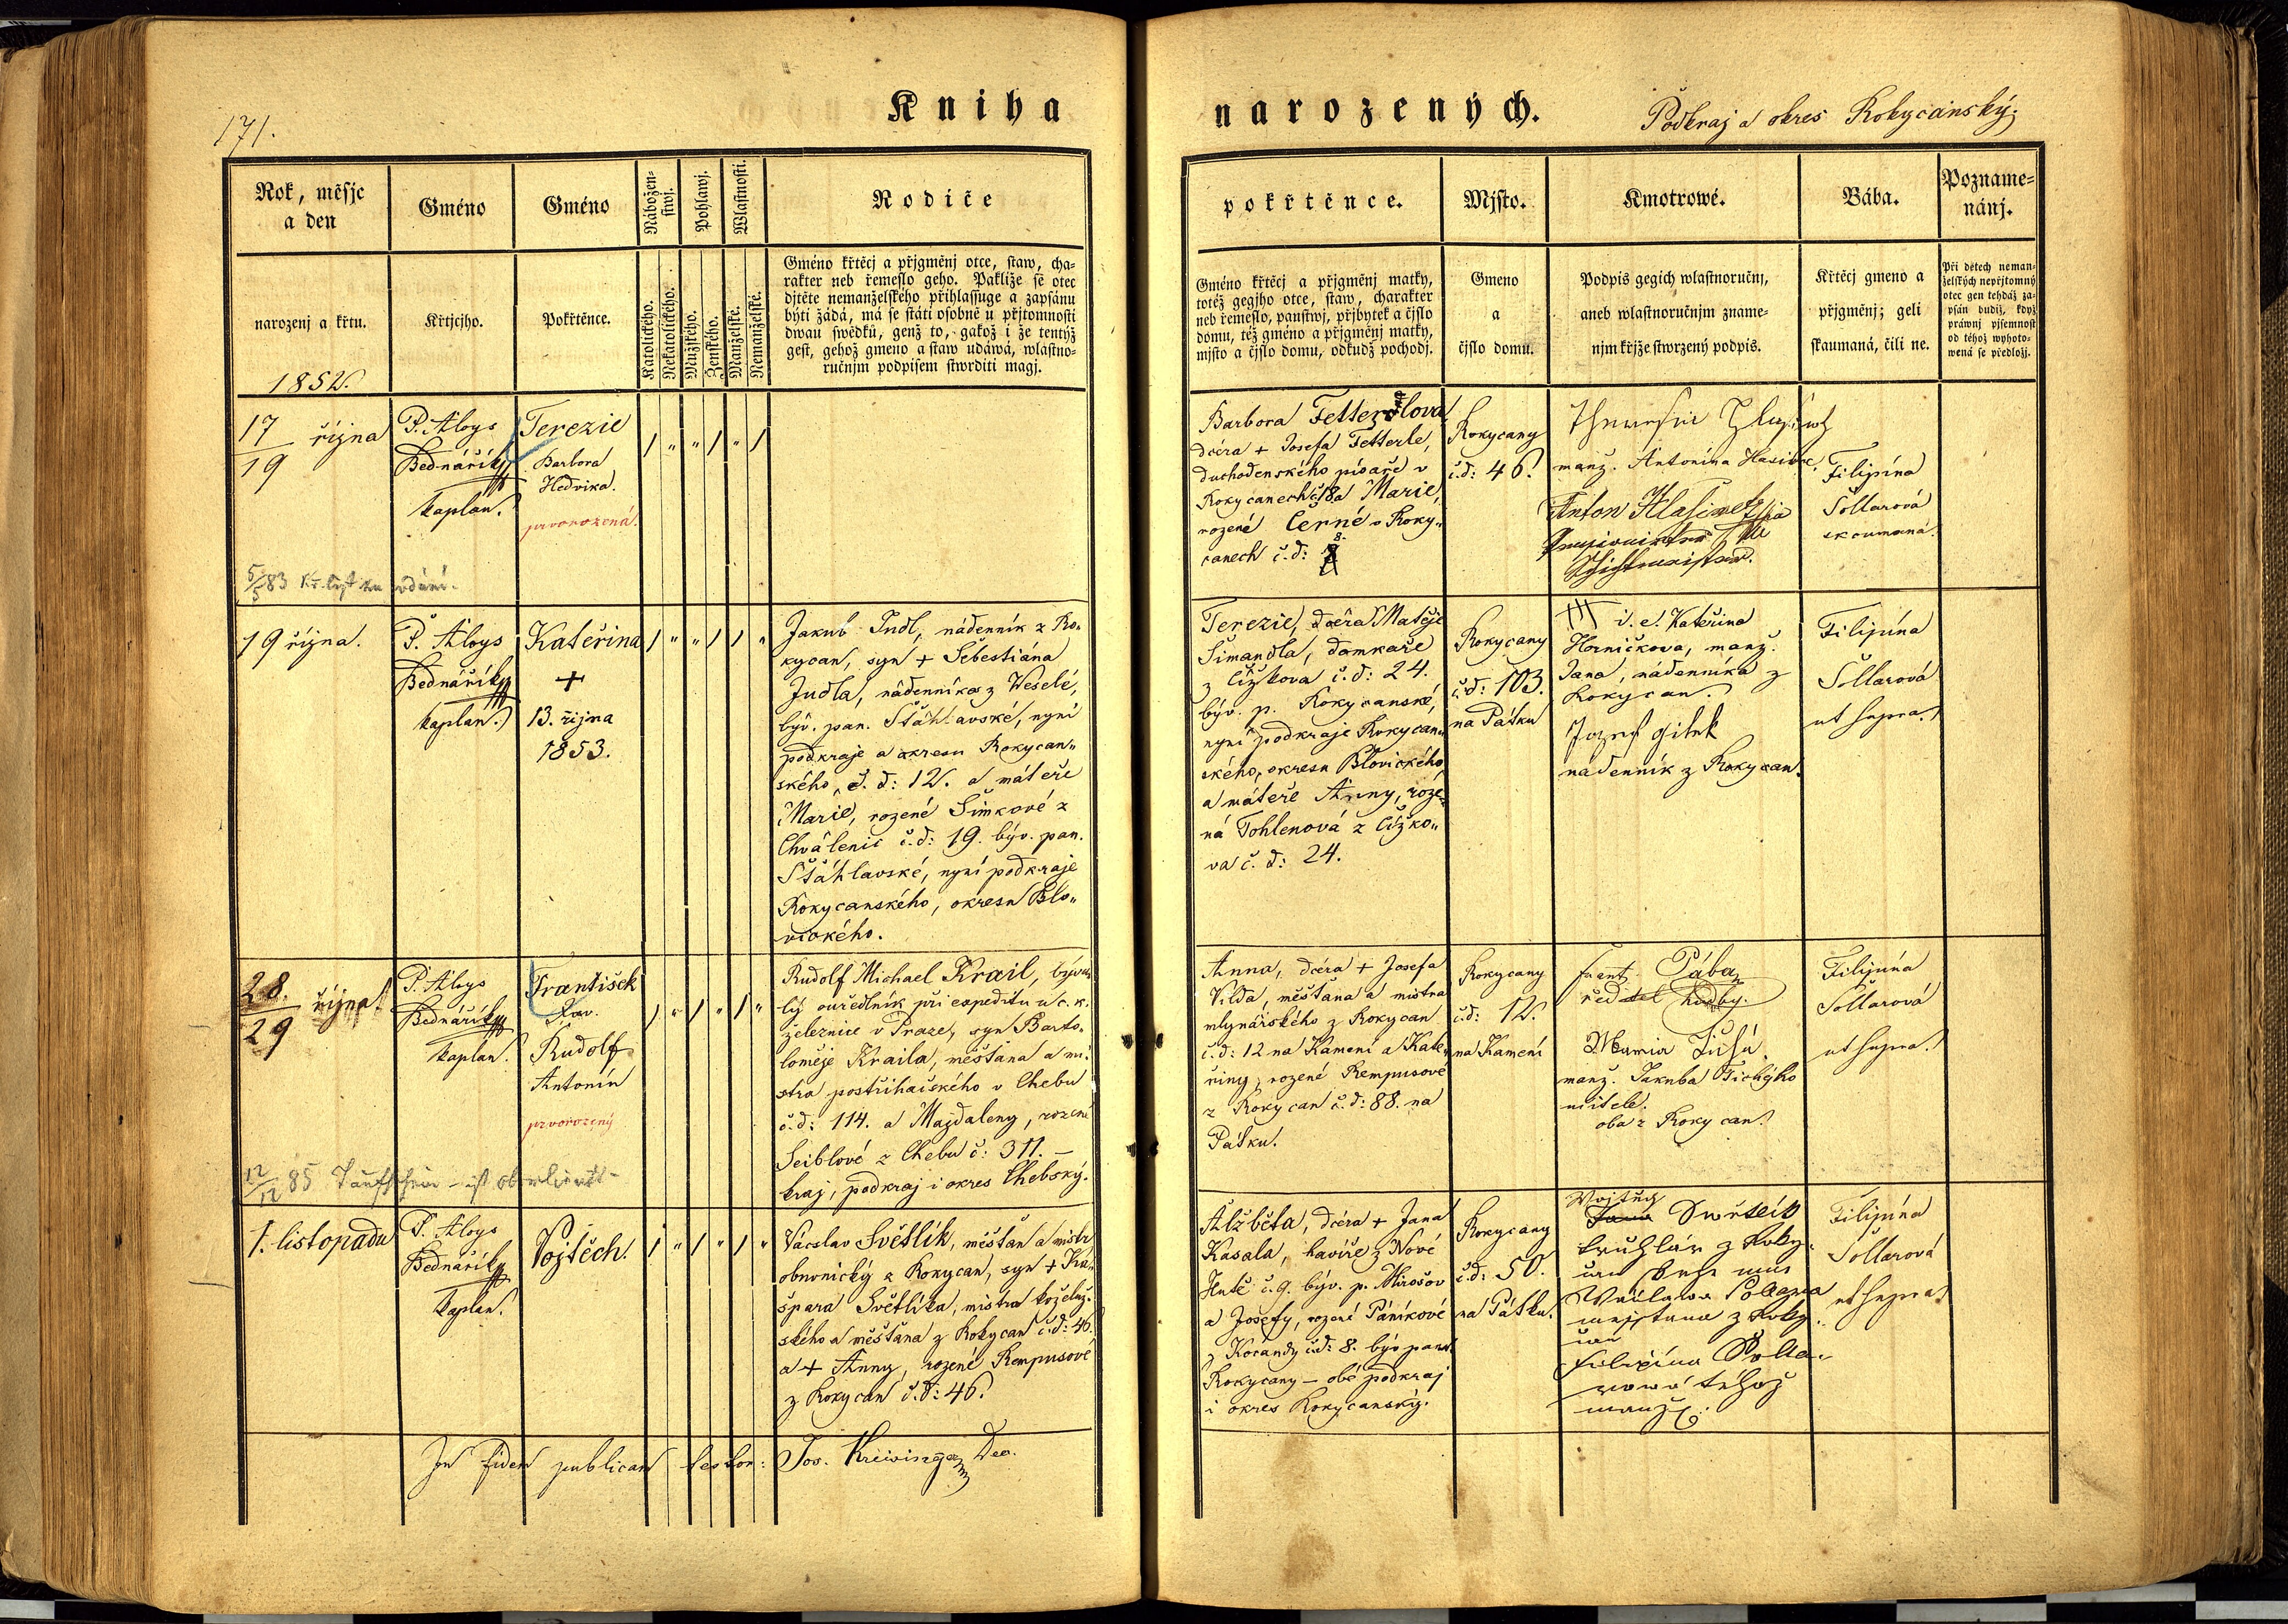 171.
Kniha
narozených.
Podkraj a okres Rokycanský.
Rok, měsjc
a den
narozenj a křtu.
1852.
Gméno
Křtjcjho.
Gméno
Pokřtěnce.
Nábožen-
stwj.
Pohlawj.
Wlastnosti.
Katolického.
Nekatolického.
Mužského.
Ženského.
Manželské.
Nemanželské.
Rodiče
Gméno křtěcj a přjgměnj otce, staw, cha-
rakter neb řemeslo geho. Pakliže se otec
djtěte nemanželského přihlassuge a zapsánu
býti žádá, má se státi osobně u přjtomnosti
dwau swědků, genž to, gakož i že tentýž
gest, gehož gmeno a staw udáwá, wlastno-
ručnjm podpisem stwrditi magj.
pokřtěnce.
Gméno křtěcj a přjgměnj matky,
totéž gegjho otce, staw, charakter
neb řemeslo, panstwj, přjbytek a čjslo
domu, též gméno a přjgměnj matky,
mjsto a čjslo domu, odkudž pochodj.
Mjsto.
Gmeno
a
čjslo domu.
Kmotrowé.
Podpis gegich wlastnoručnj,
aneb wlastnoručnjm zname-
njm křjže stwrzený podpis.
Bába.
Křtěcj gmeno a
přjgměnj; geli
skaumaná, čili ne.
Pozname-
nánj.
Při dětech neman-
želských nepřjtomný
otec gen tehdáž za-
psán budiž, když
práwnj pjsemnost
od téhož wyhoto-
wená se předložj.
17
19 října
P. Aloys
Bednářík
kaplan.
Terezie
Barbora
Hedvika.
prvorozená.
/ " " / " /
Barbora Fetterlova
dcéra + Josefa Fetterle,
duchodenského písaře v
Rokycanech č. 8 a Marie,
rozené Černé v Roky„
canech č. d: 8.
Rokycany
č.d: 46.
manž. Antonína
Anton Hlasiwetz
Filipína
Šollarová
skoumaná.
5/5 83 Kř. list ku vdání.
19 října.
P. Aloys
Bednářík
kaplan.
Kateřina
+
13. října
1853.
/ " " / / "
Jakub Judl, nádenník z Ro„
kycan, syn + Šebestiána
Judla, nádenníka z Weselé,
býv. pan. Štáhlavské, nyní
podkraje a okresu Rokycan„
ského, č. d: 12. a máteře
Marie, rozené Šimkové z
Chválenic č. d: 19. býv. pan.
Štáhlavské, nyní podkraje
Rokycanského, okresu Blo„
vického.
Terezie, dcéra Matěje
Šimandla, domkaře
z Čížkova č. d: 24.
býv. p. Rokycanské,
nyní podkraje Rokycan„
ského, okresu Blovického
a máteře Anny, roze„
ná Tohlenová z Čížko„
va č. d: 24.
Rokycany
č.d: 103.
na Pátku
+++ i. e. Kateřina
Horničkova, manž.
Jana, nádenníka z
Rokycan.
Jozef
nádenník z Rokycan.
Filipína
Šollarová
ut supra.
28.
29 října
P. Aloys
Bednářík
kaplan.
František
Xav.
Rudolf
Antonín
prvorozený
/ " / " / "
Rudolf Michael Krail, býva„
lý ouředlník při expeditu u c. k.
železnice v Praze, syn Barto„
loměje Kraila, měšťana a mi„
stra postřihačského v Chebu
č. d: 114. a Majdaleny, rozené
Seiblové z Chebu č: 311. –
kraj, podkraj i okres Chebský.
Anna, dcéra + Josefa
Vilda, měšťana a mistra
mlynářského z Rokycan
č. d: 12 na Kamení a Kate„
řiny, rozené Rempusové
z Rokycan č. d: 88. na
Pátku.
Rokycany
č.d: 12.
na Kamení
Frant. Pába
ředitel hudby.
manž. Jakuba Tichýho
učitele.
oba z Rokycan.
Filipína
Šollarová
ut supra.
12/12 85 Taufschein
1. listopadu
P. Aloys
Bednářík
kaplan.
Vojtěch.
/ " / " / "
Václav Světlík, měšťan a mistr
obuvnický z Rokycan, syn + Ka„
špara Světlíka, mistra koželuž„
ského a měšťana z Rokycan č. d: 46.
a + Anny, rozené Rempusové
z Rokycan č. d: 46.
Alžběta, dcéra + Jana
Kasala, havíře z Nové
Hutě č. 9. býv. p. Mirošov
a Josefy, rozené Páníkové
z Kocandy č.d: 8. býv. pans.
Rokycany – obé podkraj
i okres Rokycanský.
Rokycany
č.d: 50.
na Pátku.
Wojtěch
Swětlík
truhlář z Roky„
can
z Roky„
can
Filipína Šolla„
rowá téhož
manž.
Filipína
Šollarová
ut supra.
In fidem publicam testor: Jos. Kreisinger Dec.